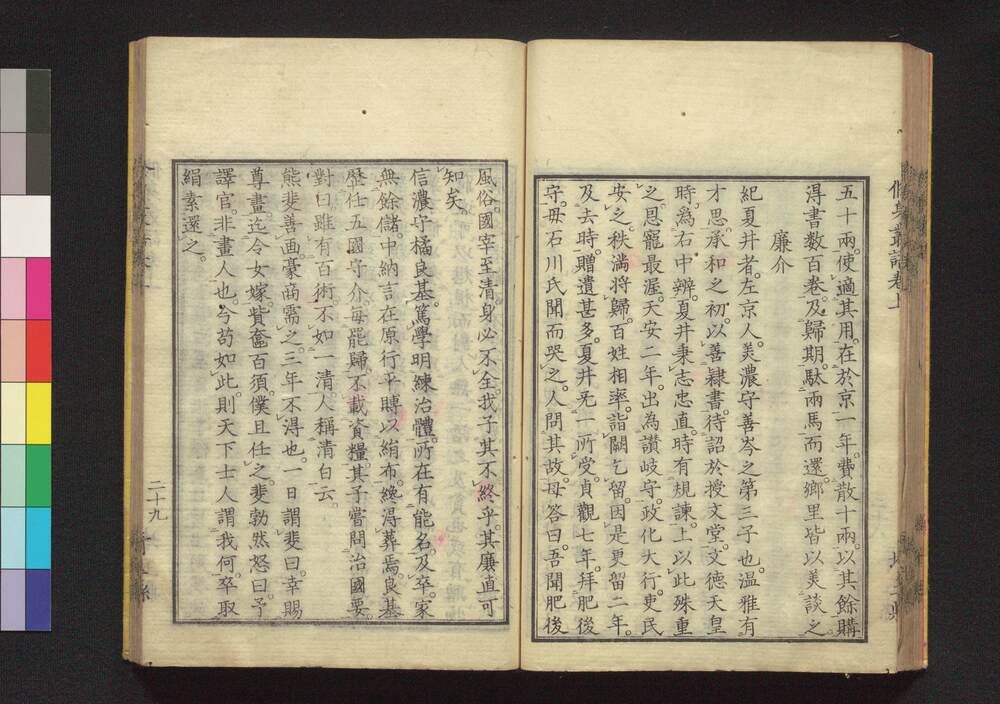 脩身叢話卷上
五十兩。使適其用。在於京一年。費散十兩。以其餘購
得書數百卷。及歸期。馱兩馬而還。鄉里皆以美談之。
廉介
紀夏井者。左京人。美濃守善岑之第三子也。溫雅有
才思。承和之初。以善隸書。待詔於授文堂。文德天皇
時。為右中辨。夏井秉志忠直。時有規諫。上以此殊重
之。恩寵最渥。天安二年。出為讚岐守。政化大行。吏民
安之。秩滿將歸。百姓相率。詣闕乞留。因是更留二年。
及去時。贈遺甚多。夏井旡一所受。貞觀七年。拜肥後
守。毋石川氏聞而哭之。人問其故。母答曰。吾聞肥後
風俗。國宰至清。身必不全。我子其不終乎。其廉直可
知矣。
信濃守橘良基。篤學明練治體。所在有能名。及卒。家
無餘儲。中納言在原行平。賻以絹布。纔得葬焉。良基
歷任五國守介。每罷歸。不載資糧。其子嘗問治國要。
對曰。雖有百術。不如一清。人稱清白云。
熊斐善画。豪商需之。三年不得也。一日謂斐曰。幸賜
尊畫。迄令女嫁。貲奩百須。僕且任之。斐勃然怒曰。予
譯官。非畫人也。今苟如此。則天下士人謂我何。卒取
絹素還之。
二十九